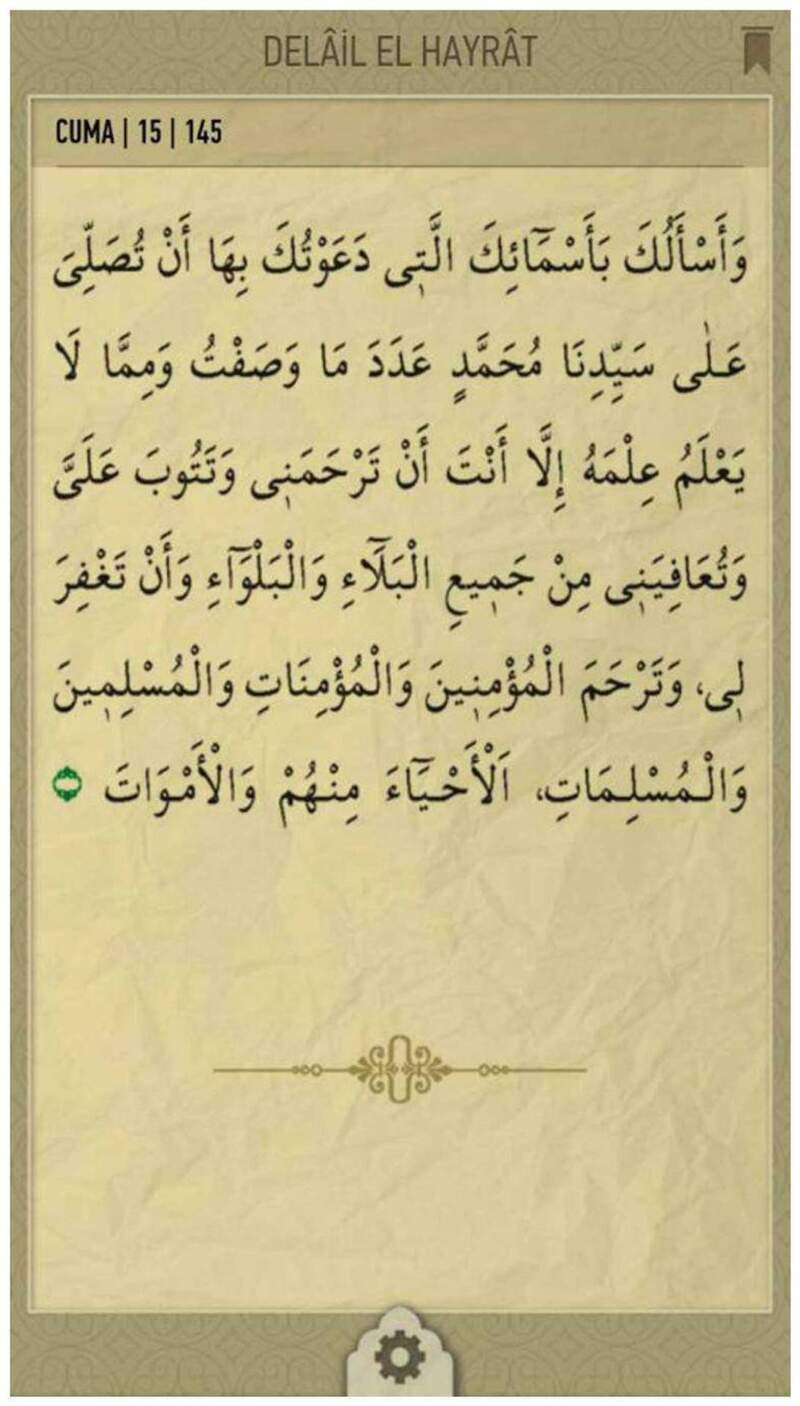 DELÂİL EL HAYRÂT
CUMA | 15 | 145
وَأَسْأَلُكَ بَأَسْمَٓائِكَ الَّتِى دَعَوْتُكَ بِهَا أَنْ تُصَلِّىَ
عَلٰى سَيِّدِنَا مُحَمَّدٍ عَدَدَ مَا وَصَفْتُ وَمِمَّا لَا
يَعْلَمُ عِلْمَهُ إِلَّا أَنْتَ أَنْ تَرْحَمَنِى وَتَتُوبَ عَلَىَّ
وَتُعَافِيَنِى مِنْ جَمِيعِ الْبَلَٓاءِ وَالْبَلْوَٓاءِ وَأَنْ تَغْفِرَ
لِى، وَتَرْحَمَ الْمُؤْمِنِينَ وَالْمُؤْمِنَاتِ وَالْمُسْلِمِينَ
وَالْمُسْلِمَاتِ، اَلْأَحْيَٓاءَ مِنْهُمْ وَالْأَمْوَاتَ